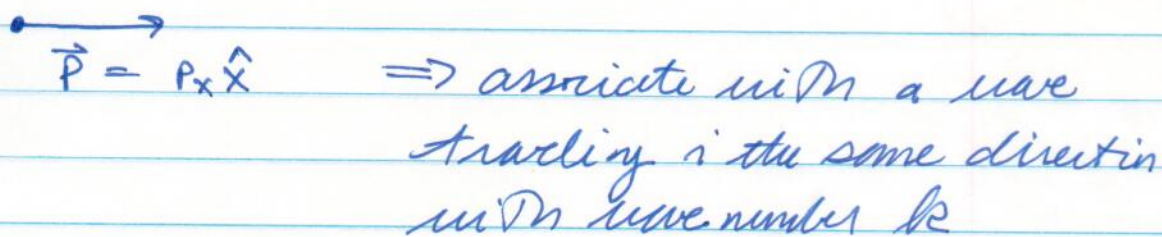 $\vec{P} = P_x \hat{x}$ ⇒ associate with a wave
traveling in the same direction
with wavenumber k